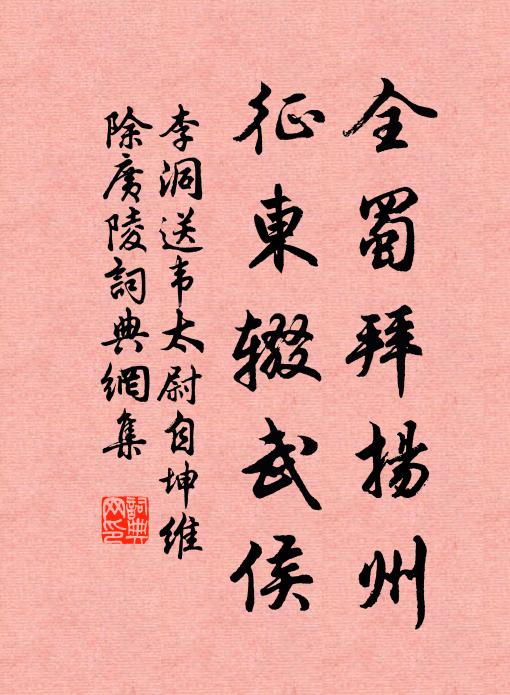 全蜀拜揚州
征東辍武侯
李洞送韦太尉自坤維
除廣陵詞典網集
詞典网印